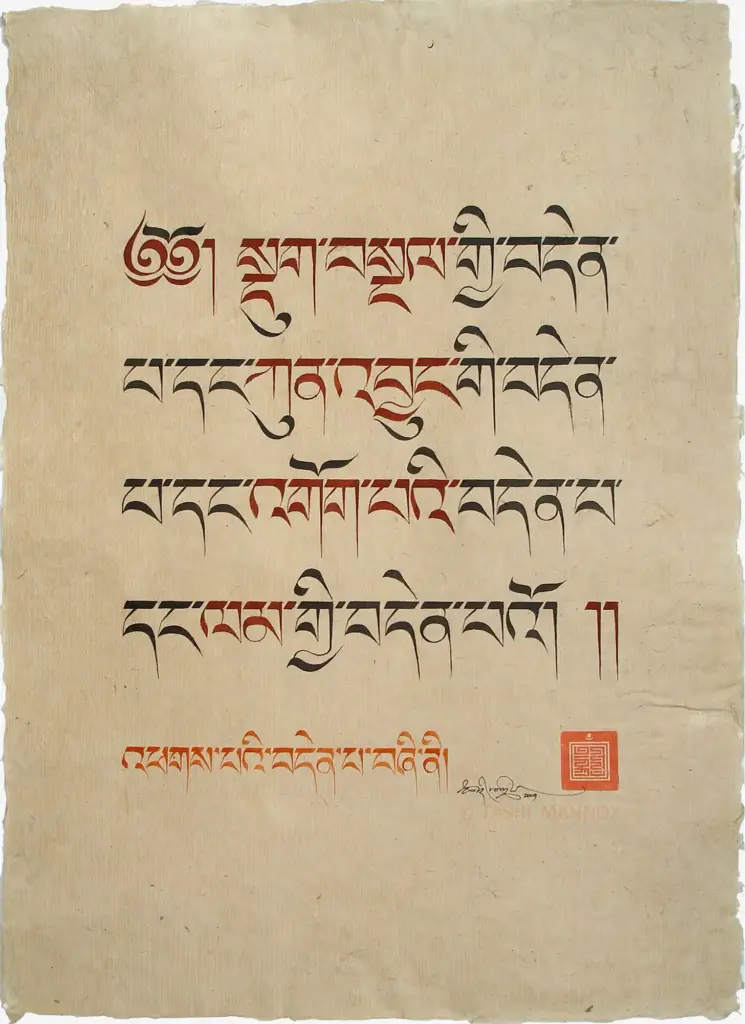 ༄༅། སྡུག་བསྔལ་གྱི་བདེན་
པ་དང་ཀུན་འབྱུང་གི་བདེན་
པ་དང་འགོག་པའི་བདེན་པ་
དང་ལམ་གྱི་བདེན་པའོ། །།
འཕགས་པའི་བདེན་པ་བཞི་ནི།
2009
© TASHI MANNOX